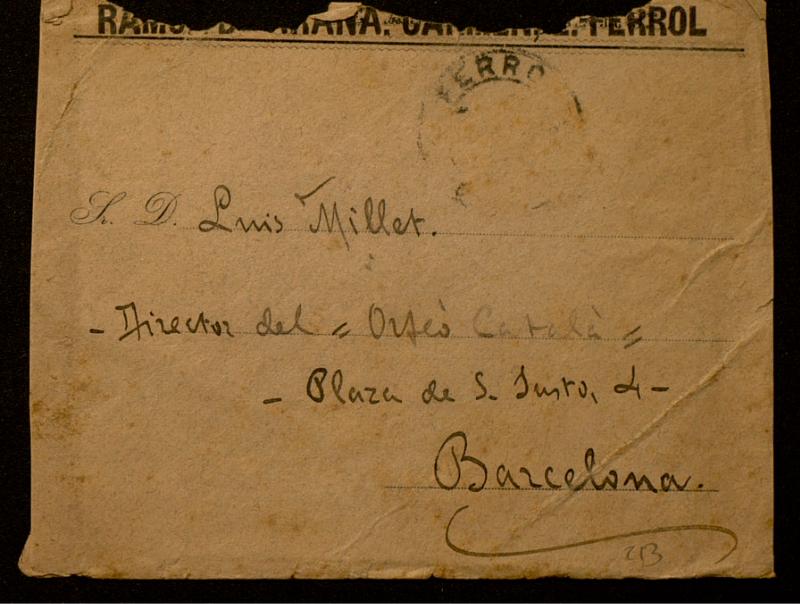 CARMEN, 2. FERROL
FERRO
Sr. D. Luis Millet.
- Director del = Orfeò Català =
- Plaza de S. Justo, 4 -
Barcelona.